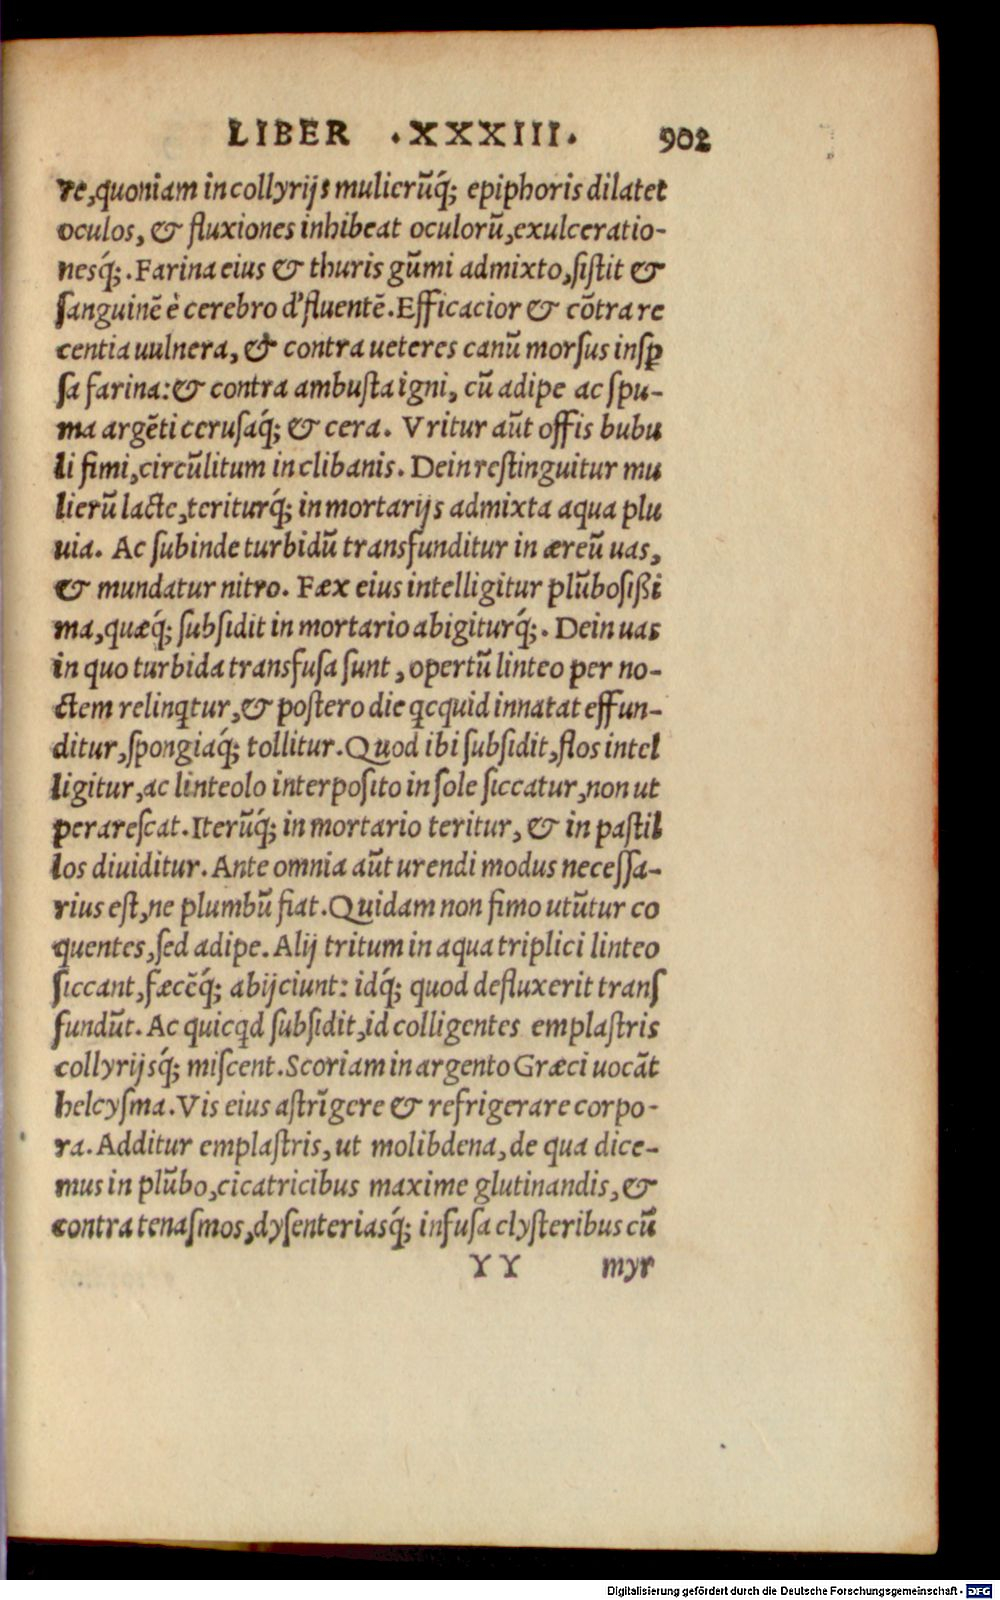 LIBER .XXXIII. 902
re,quoniam in collyrijs mulierūq́; epiphoris dilatet
oculos, & fluxiones inhibeat oculorū,exulceratio-
nesq́;. Farina eius & thuris gūmi admixto,ſiſtit &
ſanguinē è cerebro d'fluentē. Efficacior & cōtra re
centia uulnera, & contra ueteres canū morſus inſꝑ
ſa farina:& contra ambuſta igni, cū adipe ac ſpu-
ma argēti ceruſaq́; & cera. Vritur aūt offis bubu
li fimi,circūlitum in clibanis. Dein reſtinguitur mu
lierū lacte,teriturq́; in mortarijs admixta aqua plu
uia. Ac ſubinde turbidū transfunditur in æreū uas,
& mundatur nitro. Fæx eius intelligitur plūboſißi
ma,quæq́; ſubſidit in mortario abigiturq́;. Dein uas
in quo turbida transfuſa ſunt, opertū linteo per no-
ctem relinqtur,& poſtero die qcquid innatat effun-
ditur,ſpongiaq́; tollitur. Quod ibi ſubſidit,flos intel
ligitur,ac linteolo interpoſito in ſole ſiccatur,non ut
perareſcat. Iterūq́; in mortario teritur, & in paſtil
los diuiditur. Ante omnia aūt urendi modus neceſſa-
rius eſt,ne plumbū fiat. Quidam non fimo utūtur co
quentes,ſed adipe. Alij tritum in aqua triplici linteo
ſiccant,fæcēq́; abijciunt: idq́; quod defluxerit tranſ
fundūt. Ac quicqd ſubſidit,id colligentes emplaſtris
collyrijsq́; miſcent. Scoriam in argento Græci uocāt
helcyſma. Vis eius aſtrīgere & refrigerare corpo-
ra. Additur emplaſtris,ut molibdena,de qua dice-
mus in plūbo,cicatricibus maxime glutinandis,&
contra tenaſmos,dyſenteriasq́; infuſa clyſteribus cū
YY myr
Digitalisierung gefördert durch die Deutsche Forschungsgemeinschaft - DFG